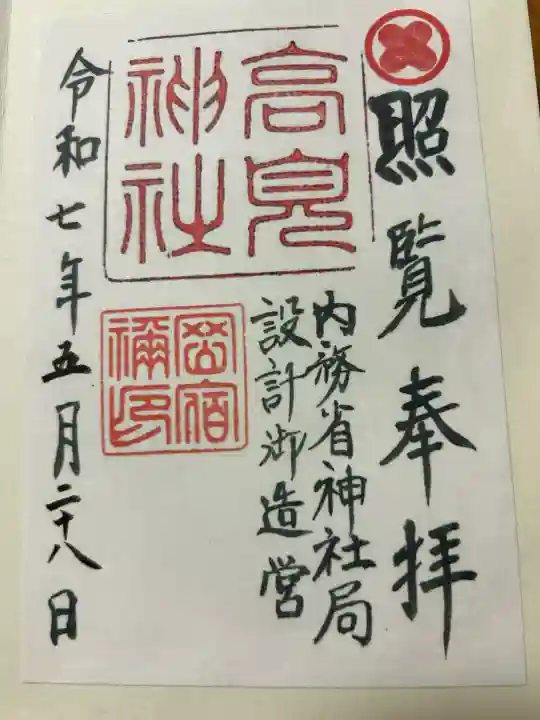 照覧奉拝
内務省神社局
設計御造営
高見
神社
宿禰
印
令和七年五月二十八日